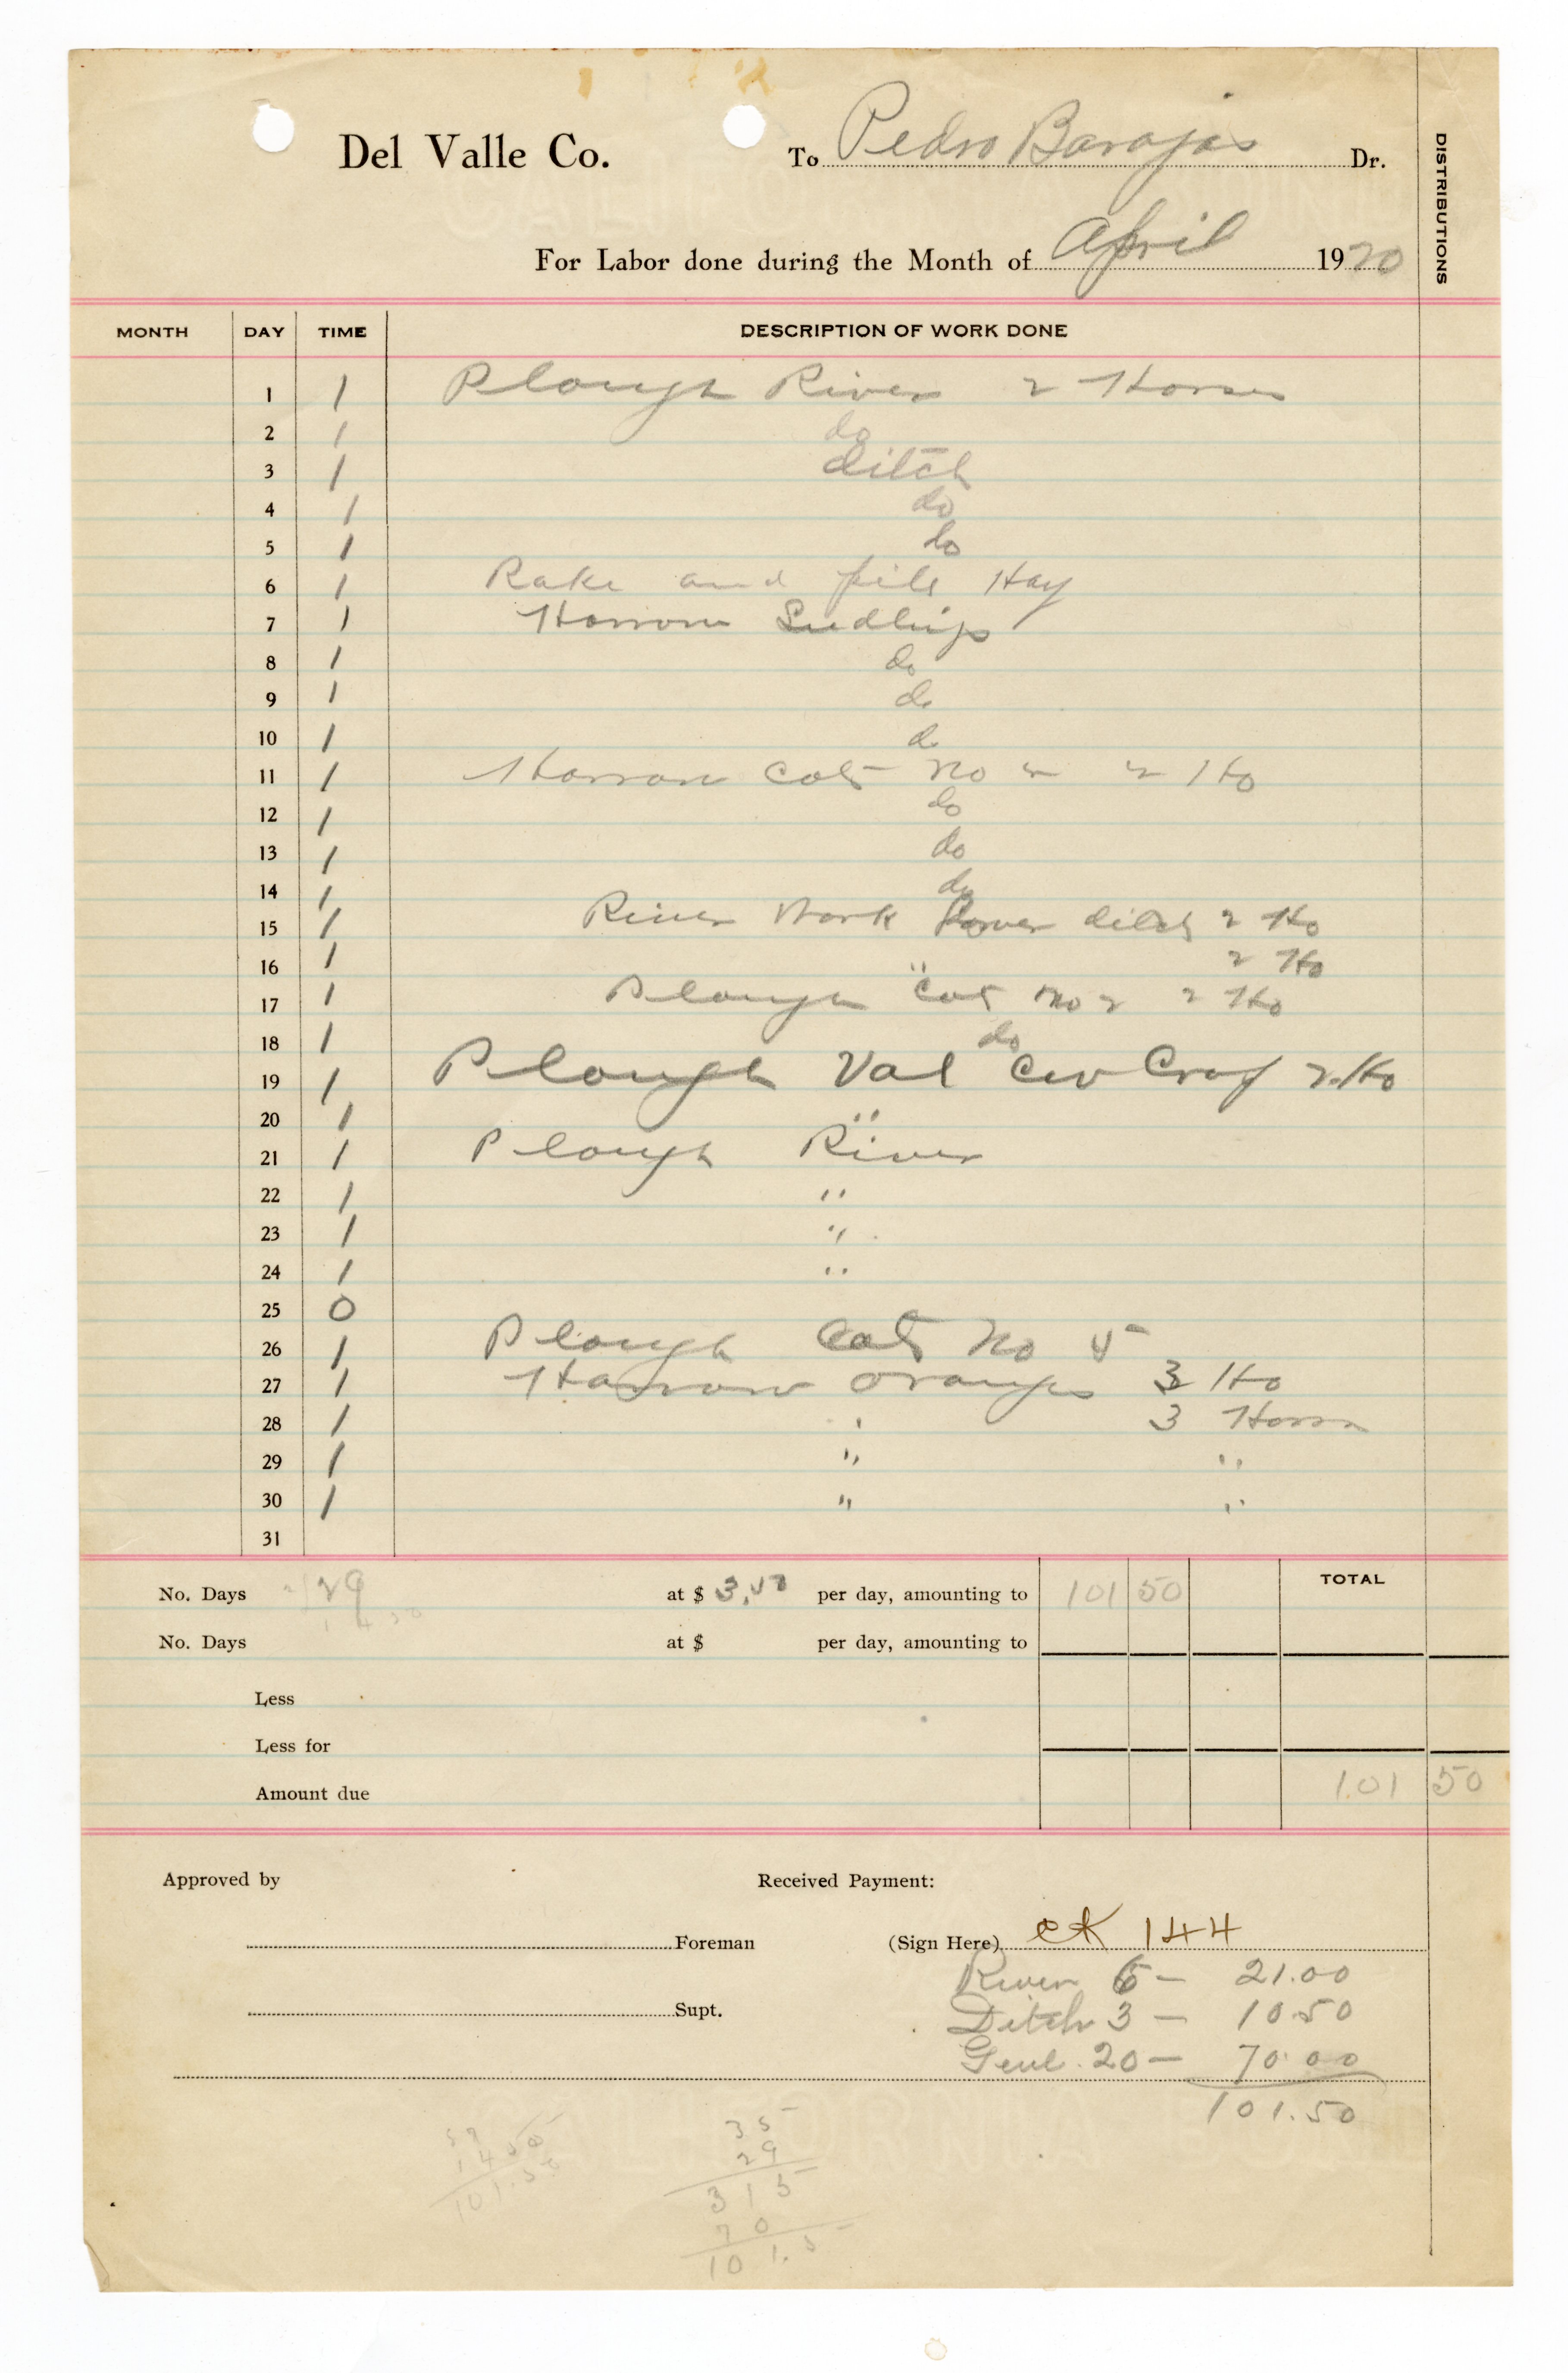 Del Valle Co. To Pedro Barajas Dr.
DISTRIBUTIONS
For Labor done during the Month of April 1920
MONTH DAY TIME DESCRIPTION OF WORK DONE
1 1 Plough River 2 Horses
2 1 do
3 1 ditch
4 1 do
5 1 do
6 1 Rake and pile Hay
7 1 Harrow Seedlings
8 1 do
9 1 do
10 1 do
11 1 Harrow Cots No 2 2 Ho
12 1 do
13 1 do
14 1 do
15 1 River Work Power ditch 2 Ho
16 1 " 2 Ho
17 1 Plough Cots No 2 2 Ho
18 1 do
19 1 Plough Val 2 Ho
20 1 "
21 1 Plough River
22 1 "
23 1 "
24 1 "
25 0
26 1 Plough Cots No 5
27 1 Harrow Oranges 3 Ho
28 1 " 3 Horses
29 1 " "
30 1 " "
31
No. Days 29 at $ 3.50 per day, amounting to 101 50 TOTAL
No. Days at $ per day, amounting to
Less
Less for
Amount due 101 50
Approved by Received Payment:
Foreman (Sign Here) ck 144
River 6 — 21.00
Supt. Ditch 3 — 10.50
Genl. 20 — 70.00
101.50
35
29
315
70
101.5
1450
101.50